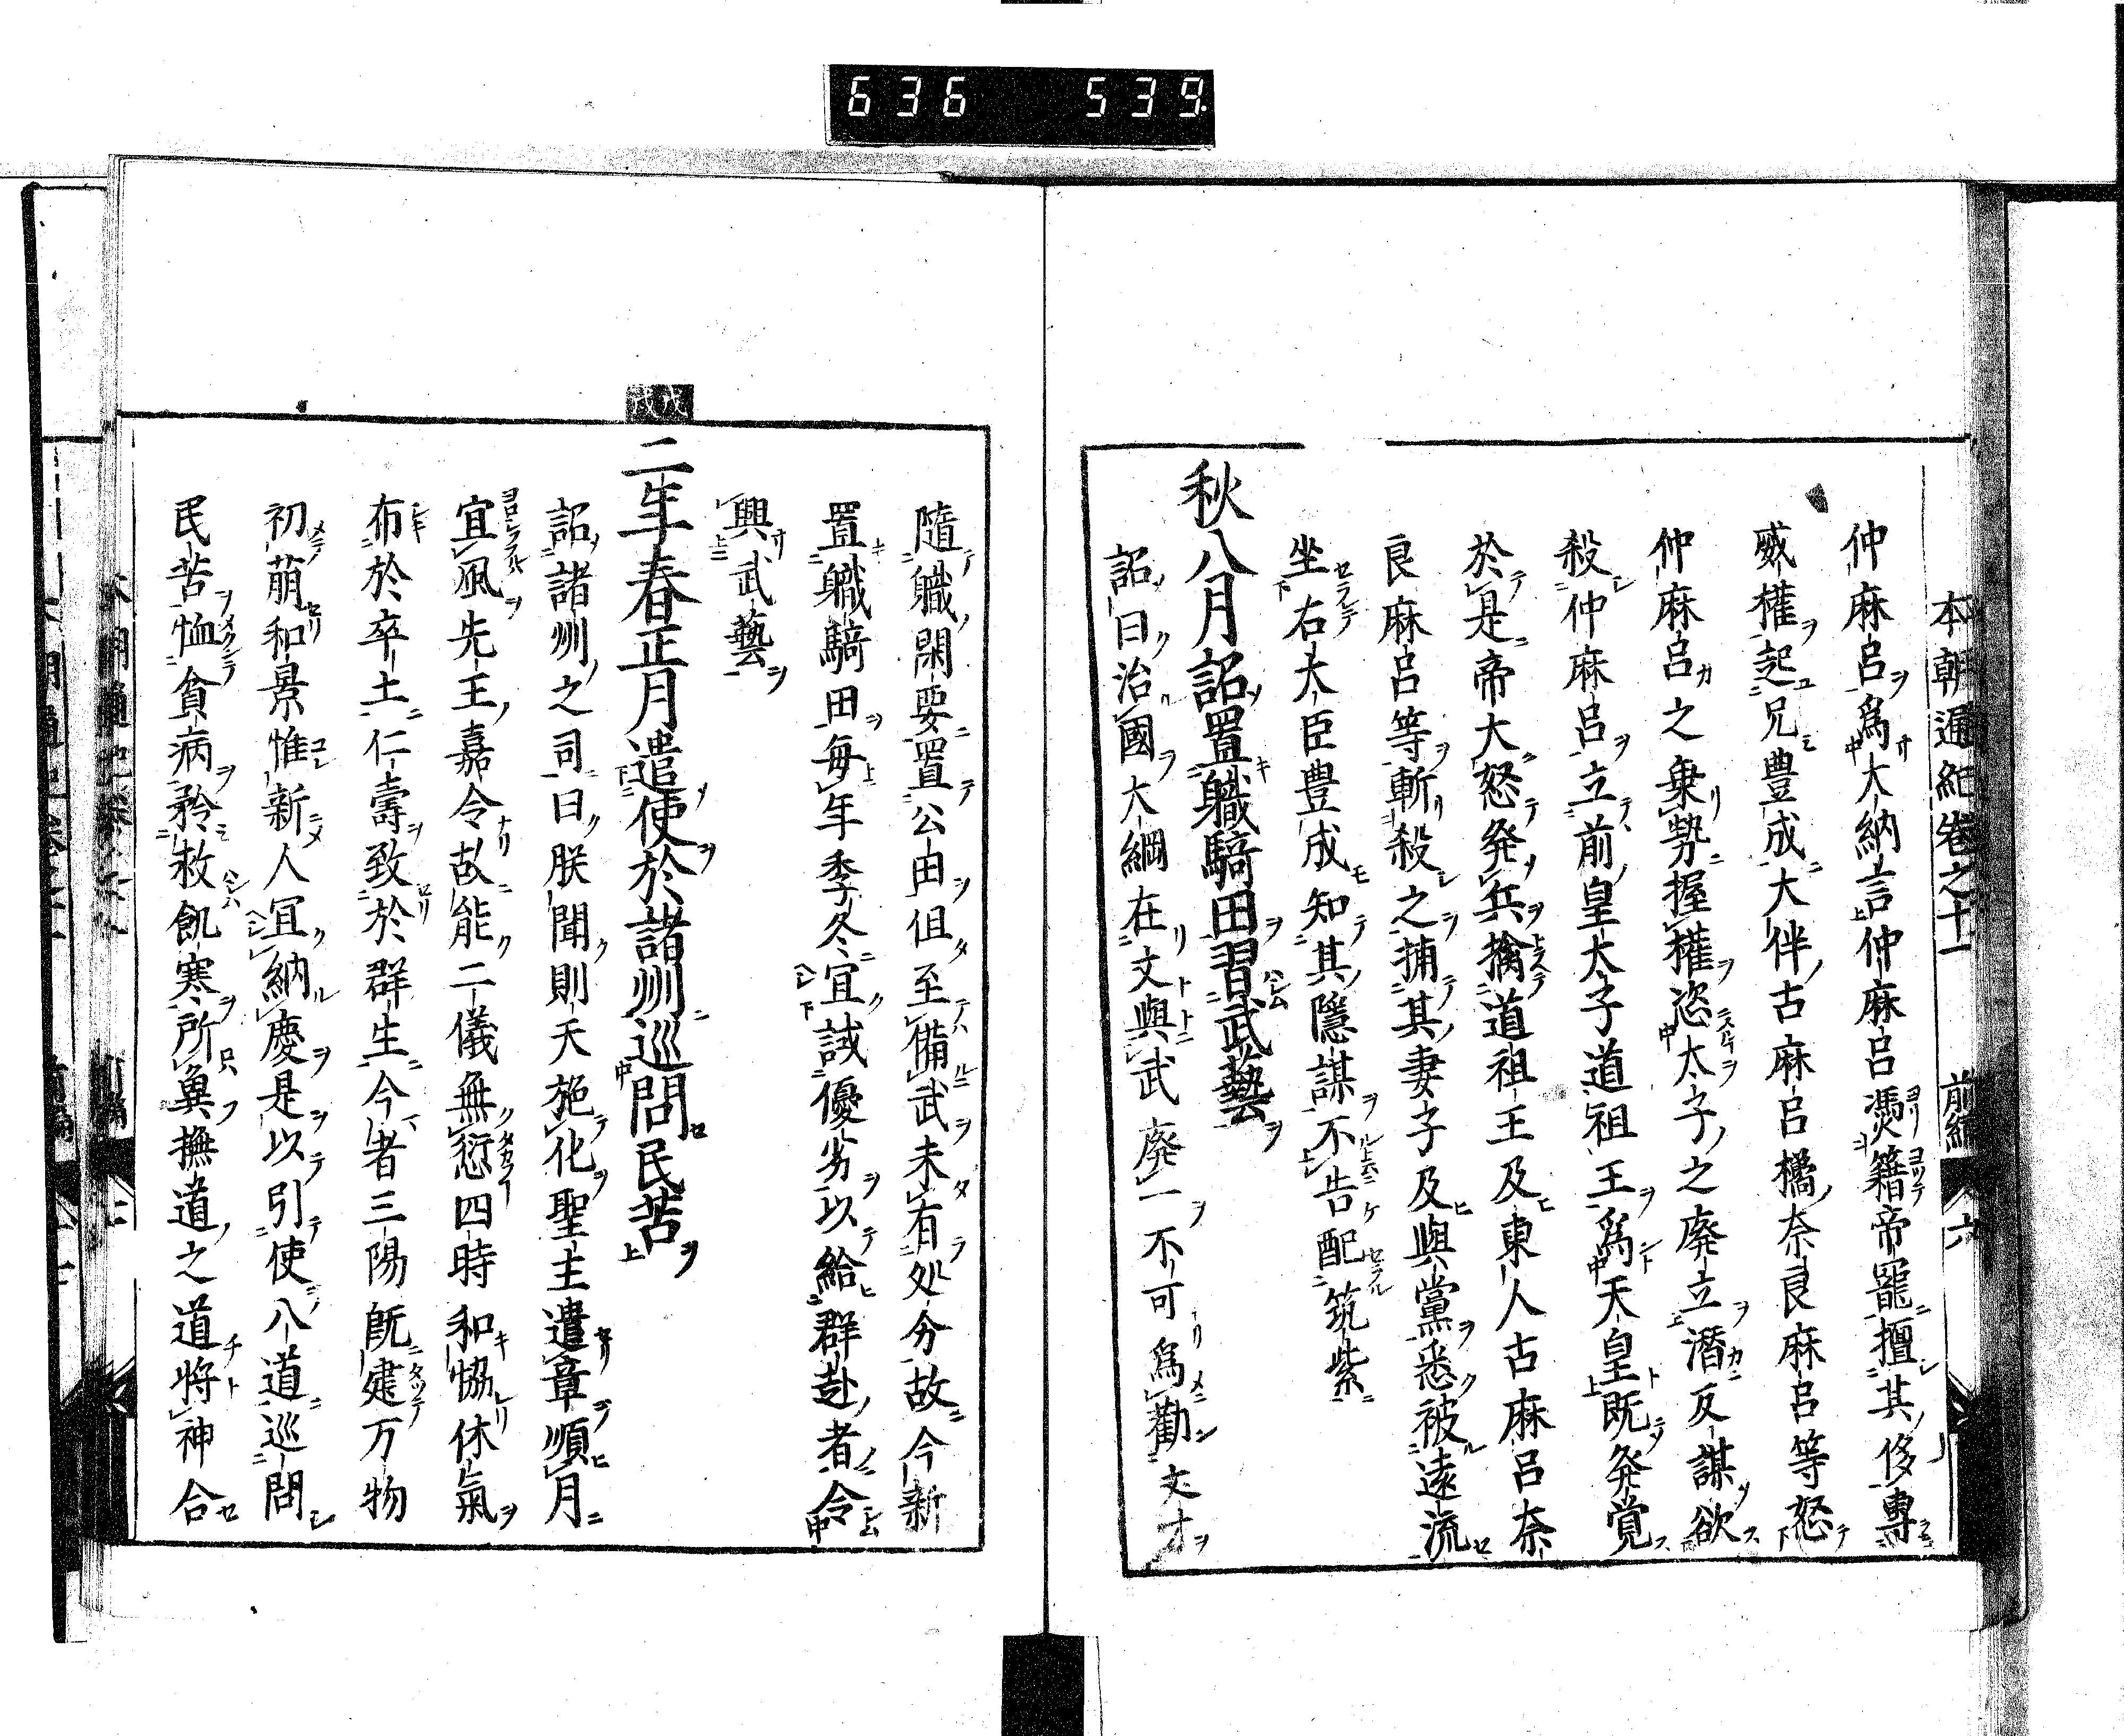 636 539
本朝通紀卷之十一 前編 六
仲麻呂爲大納言仲麻呂憑籍帝寵擅其侈專
威權起兄豊成大伴古麻呂橘奈良麻呂等怒
仲麻呂之乗勢握權恣太子之廃立潛反謀欲
殺仲麻呂立前皇太子道祖王爲天皇既発覚
於是帝大怒発兵擒道祖王及東人古麻呂奈
良麻呂等斬殺之捕其妻子及與黨悉被遠流
坐右大臣豊成知其隱謀不告配筑紫
秋八月詔置軄騎田習武藝
詔曰治國大綱在文與武廃一不可爲勸文才
隨軄閑要置公由但至備武未有処分故今新
置軄騎田每年季冬宜試優劣以給群赴者令
興武藝
戊戌
二年春正月遣使於諸州巡問民苦
詔諸州之司曰朕聞則天施化聖主遣章順月
宜風先王嘉令故能二儀無愆四時和協休氣
布於卒土仁壽致於群生今者三陽既建万物
初萠和景惟新人宜納慶是以引使八道巡問
民苦恤貧病矜救飢寒所兾撫道之道將神合